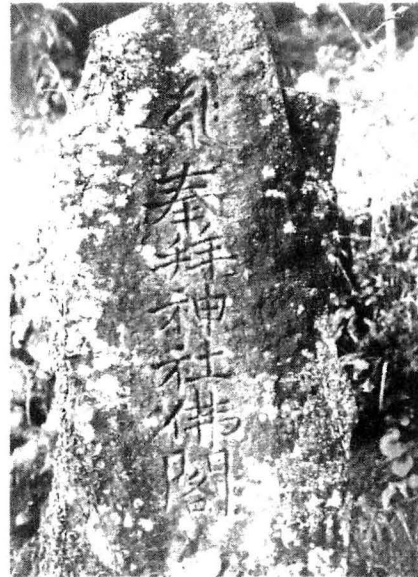 奉拝神社佛閣